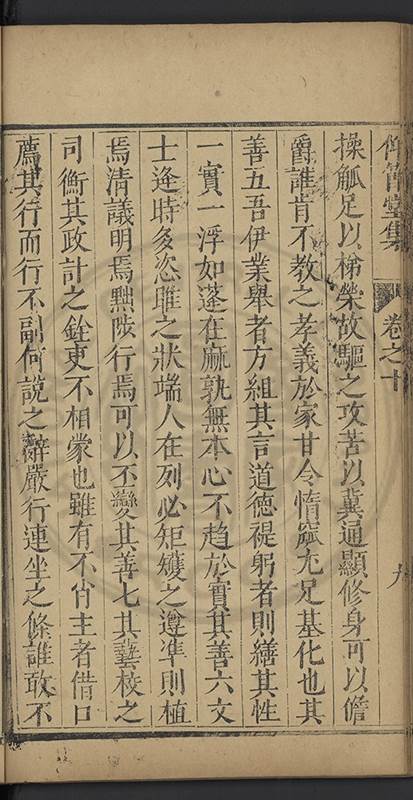 仰節堂集 卷之十 九
操觚足以梯榮故驅之攻苦以冀通顯修身可以儋
爵誰肯不教之孝義於家甘令惰窳充足基化也其
善五吾伊業舉者方組其言道德禔躬者則繕其性
一實一浮如蓬在麻孰無本心不趋於實其善六文
士逄時多恣睢之狀端人在列必矩矱之遵凖則植
焉清議明焉黜陟行焉可以丕變其善七其藝校之
司衡其政計之銓吏不相蒙也雖有不肖主者借口
薦其行而行不副何說之辭嚴行連坐之條誰敢不